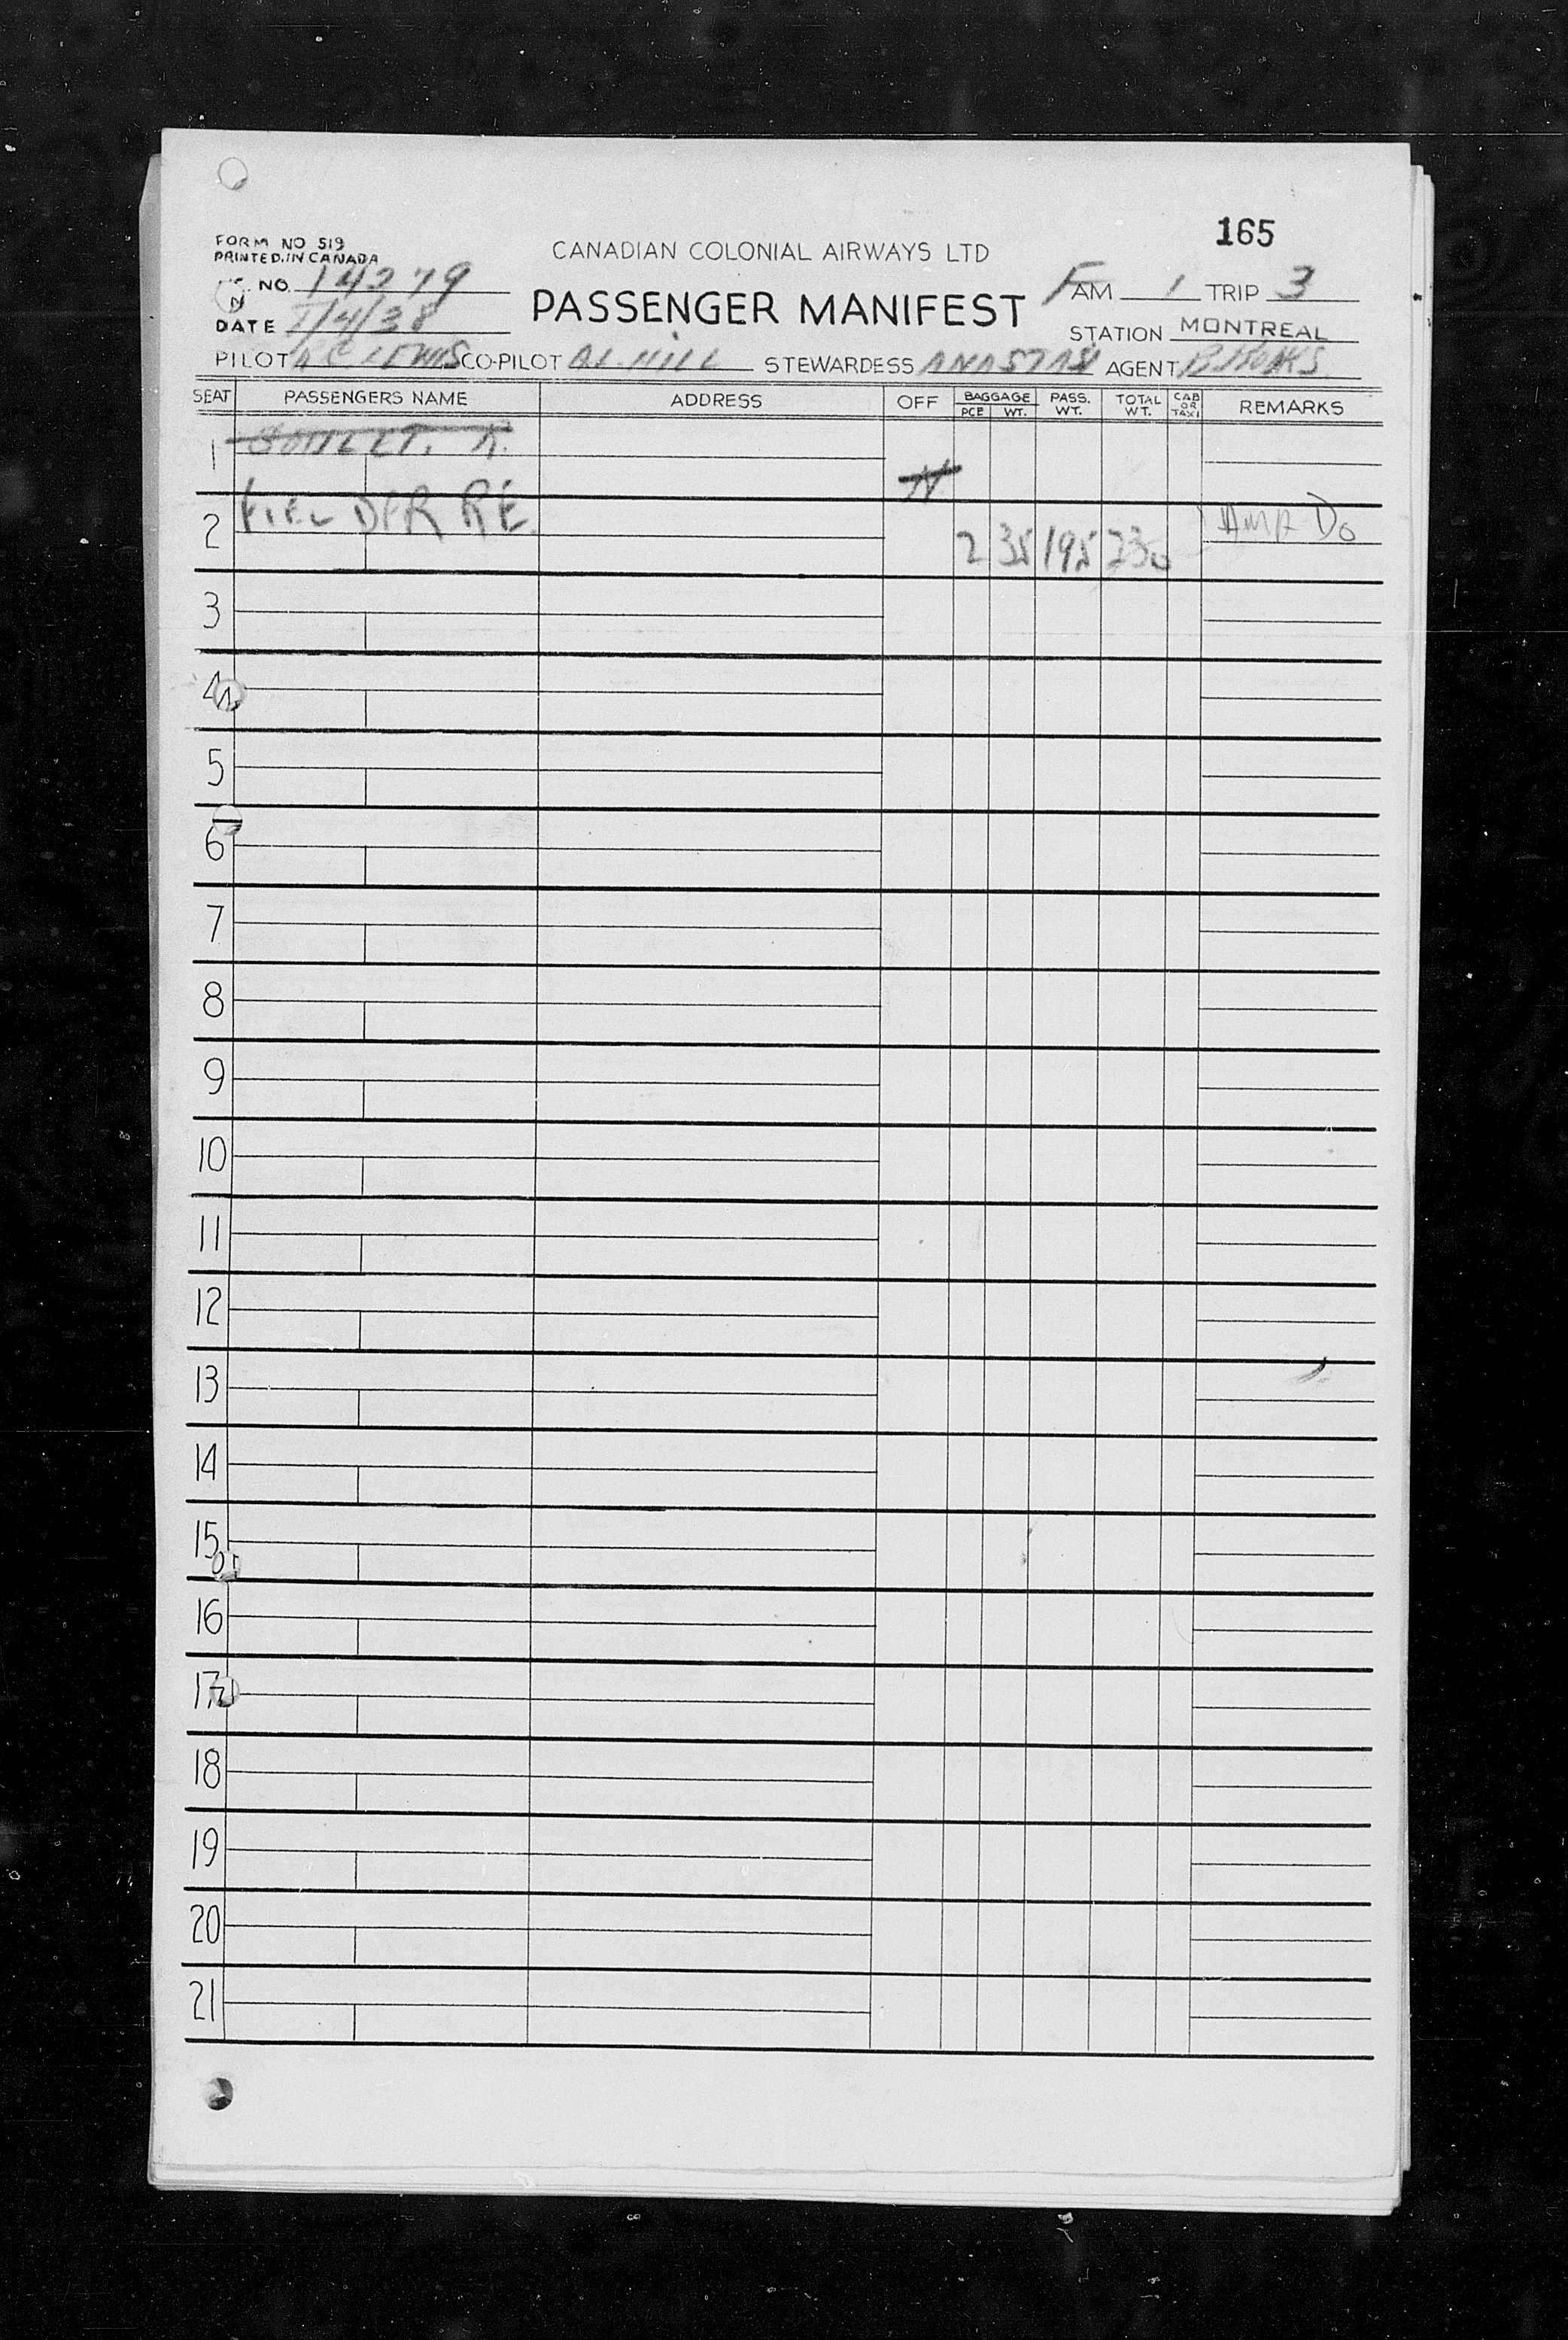 165
FORM NO 519
PRINTED IN CANADA
CANADIAN COLONIAL AIRWAYS LTD
NO. 14279
PASSENGER MANIFEST
FAM 1 TRIP 3
DATE 1/4/38
STATION MONTREAL
PILOT LEWIS CO-PILOT HILL STEWARDESS ANASTASI AGENT
SEAT PASSENGERS NAME ADDRESS OFF BAGGAGE PCE WT. PASS. WT. TOTAL WT. CAB OR TAXI REMARKS
1 N
2 FIELDER RE 2 35 195 230
3
4
5
6
7
8
9
10
11
12
13
14
15
16
17
18
19
20
21